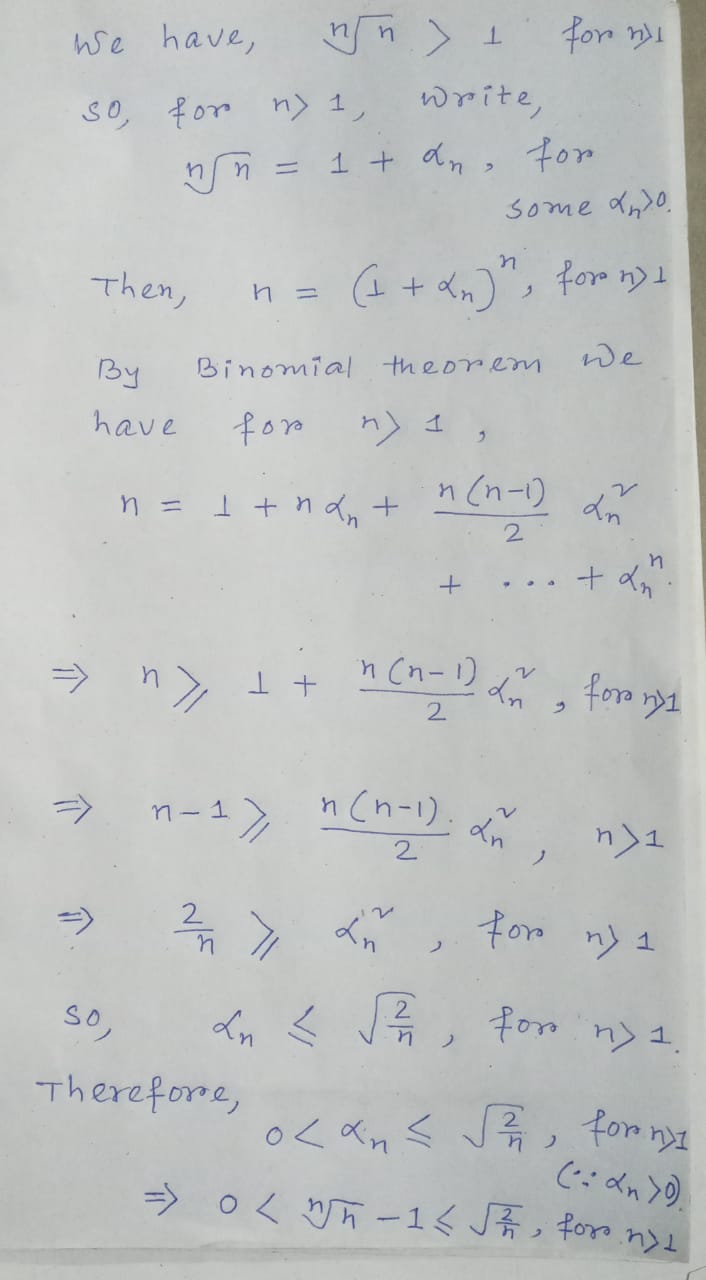 We have, ⁿ√n > 1 for n>1
so, for n> 1, write,
ⁿ√n = 1 + αₙ, for
some αₙ>0.
Then, n = (1 + αₙ)ⁿ, for n>1
By Binomial theorem we
have for n> 1,
n = 1 + nαₙ + n(n-1)/2 αₙ²
+ ... + αₙⁿ.
⇒ n ≥ 1 + n(n-1)/2 αₙ², for n>1
⇒ n-1 ≥ n(n-1)/2 . αₙ², n>1
⇒ 2/n ≥ αₙ², for n> 1
so, αₙ ≤ √(2/n), for n> 1.
Therefore,
0 < αₙ ≤ √(2/n), for n>1
(∵ αₙ >0)
⇒ 0 < ⁿ√n - 1 ≤ √(2/n), for n>1